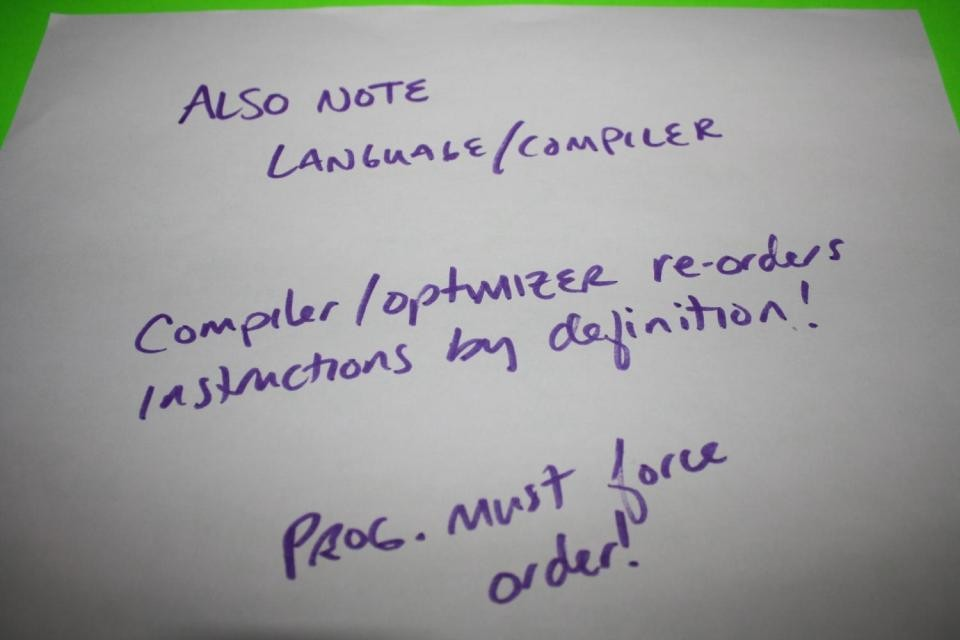 ALSO NOTE
LANGUAGE/COMPILER
Compiler/optimizer re-orders
instructions by definition!
PROG. must force
order!